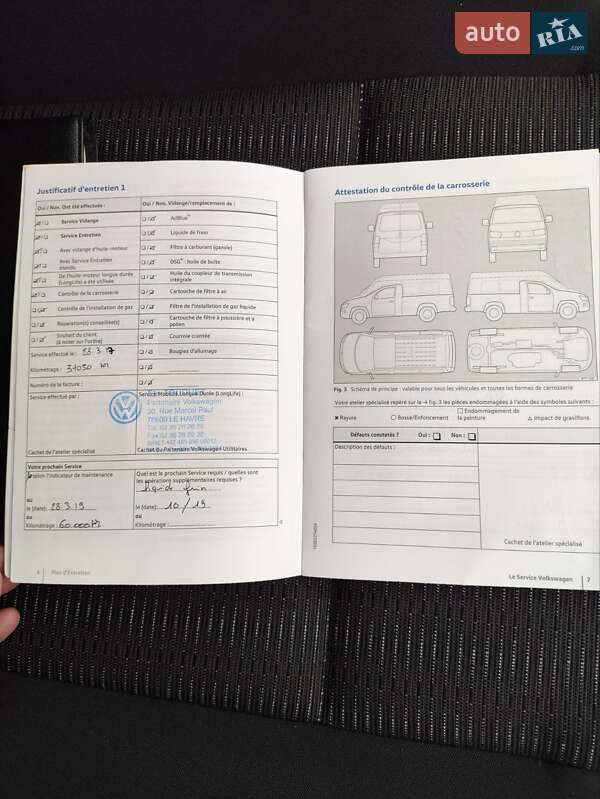 auto RIA.com
Justificatif d'entretien 1
Oui / Non. Ont été effectués :
Oui / Non. Vidange/remplacement de :
Service Vidange
AdBlue®
Service Entretien
Liquide de frein
Avec vidange d'huile-moteur
Filtre à carburant (gazole)
Avec Service Entretien étendu
DSG® : huile de boîte
De l'huile-moteur longue durée (LongLife) a été utilisée
Huile du coupleur de transmission intégrale
Contrôle de la carrosserie
Cartouche de filtre à air
Contrôle de l'installation de gaz
Filtre de l'installation de gaz liquide
Réparation(s) conseillée(s)
Cartouche de filtre à poussière et à pollen
Souhait du client (à noter sur l'ordre)
Courroie crantée
Service effectué le : 23.3.17
Bougies d'allumage
Kilométrage : 31050 km
Numéro de la facture :
Service effectué par :
Service Mobilité Longue Durée (LongLife) :
Volkswagen
20, Rue Marcel Paul
LE HAVRE
Cachet de l'atelier spécialisé
Cachet du Partenaire Volkswagen Utilitaires
Votre prochain Service
Selon l'indicateur de maintenance
Quel est le prochain Service requis / quelles sont les opérations supplémentaires requises ?
liquide frein
ou
le (date): 23.3.19
le (date): 10/19
ou
ou
Kilométrage : 60.000
Kilométrage :
6 Plan d'Entretien
Attestation du contrôle de la carrosserie
Fig. 3 Schéma de principe : valable pour tous les véhicules et toutes les formes de carrosserie
Votre atelier spécialisé repère sur la → fig. 3 les pièces endommagées à l'aide des symboles suivants :
✖ Rayure
○ Bosse/Enfoncement
□ Endommagement de la peinture
△ Impact de gravillons
Défauts constatés ?
Oui : □
Non : □
Description des défauts :
Cachet de l'atelier spécialisé
Le Service Volkswagen 7